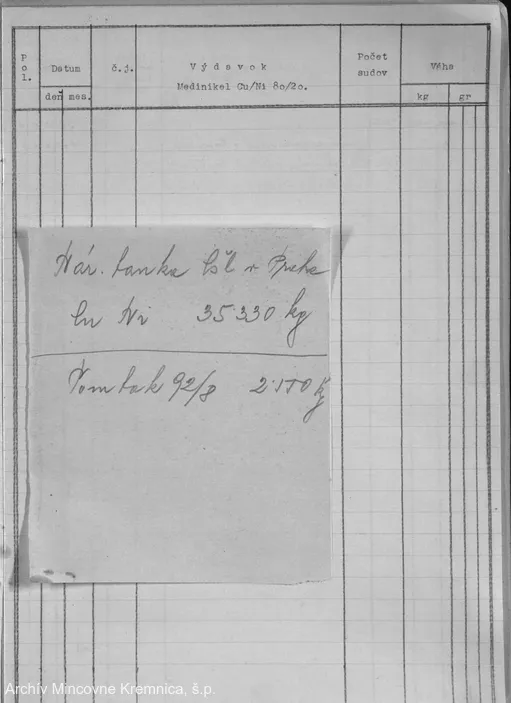 Pol.
Datum
č.j.
Výdavok
Medinikel Cu/Ni 80/20.
Počet sudov
Váha
deň mes.
kg
gr
Nár. banka čsl v Praha
Cu Ni 35.330 kg
Tombak 92/8 2.150 Kg
Archív Mincovne Kremnica, š.p.